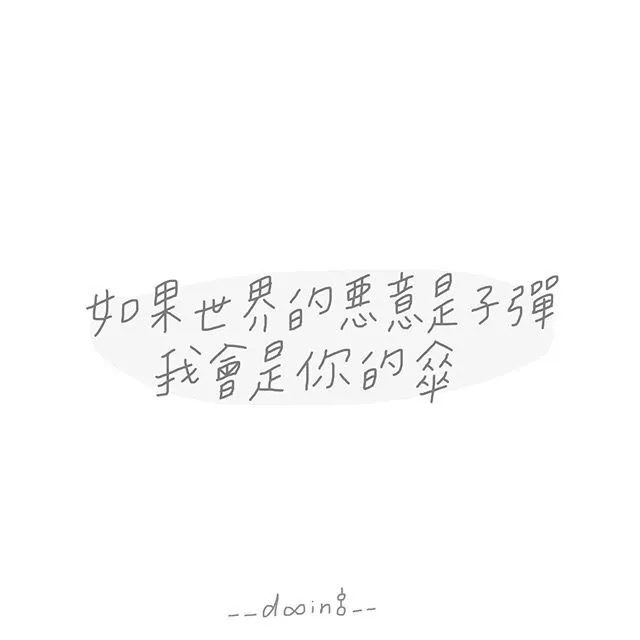 如果世界的惡意是子彈
我會是你的傘
__dooing__